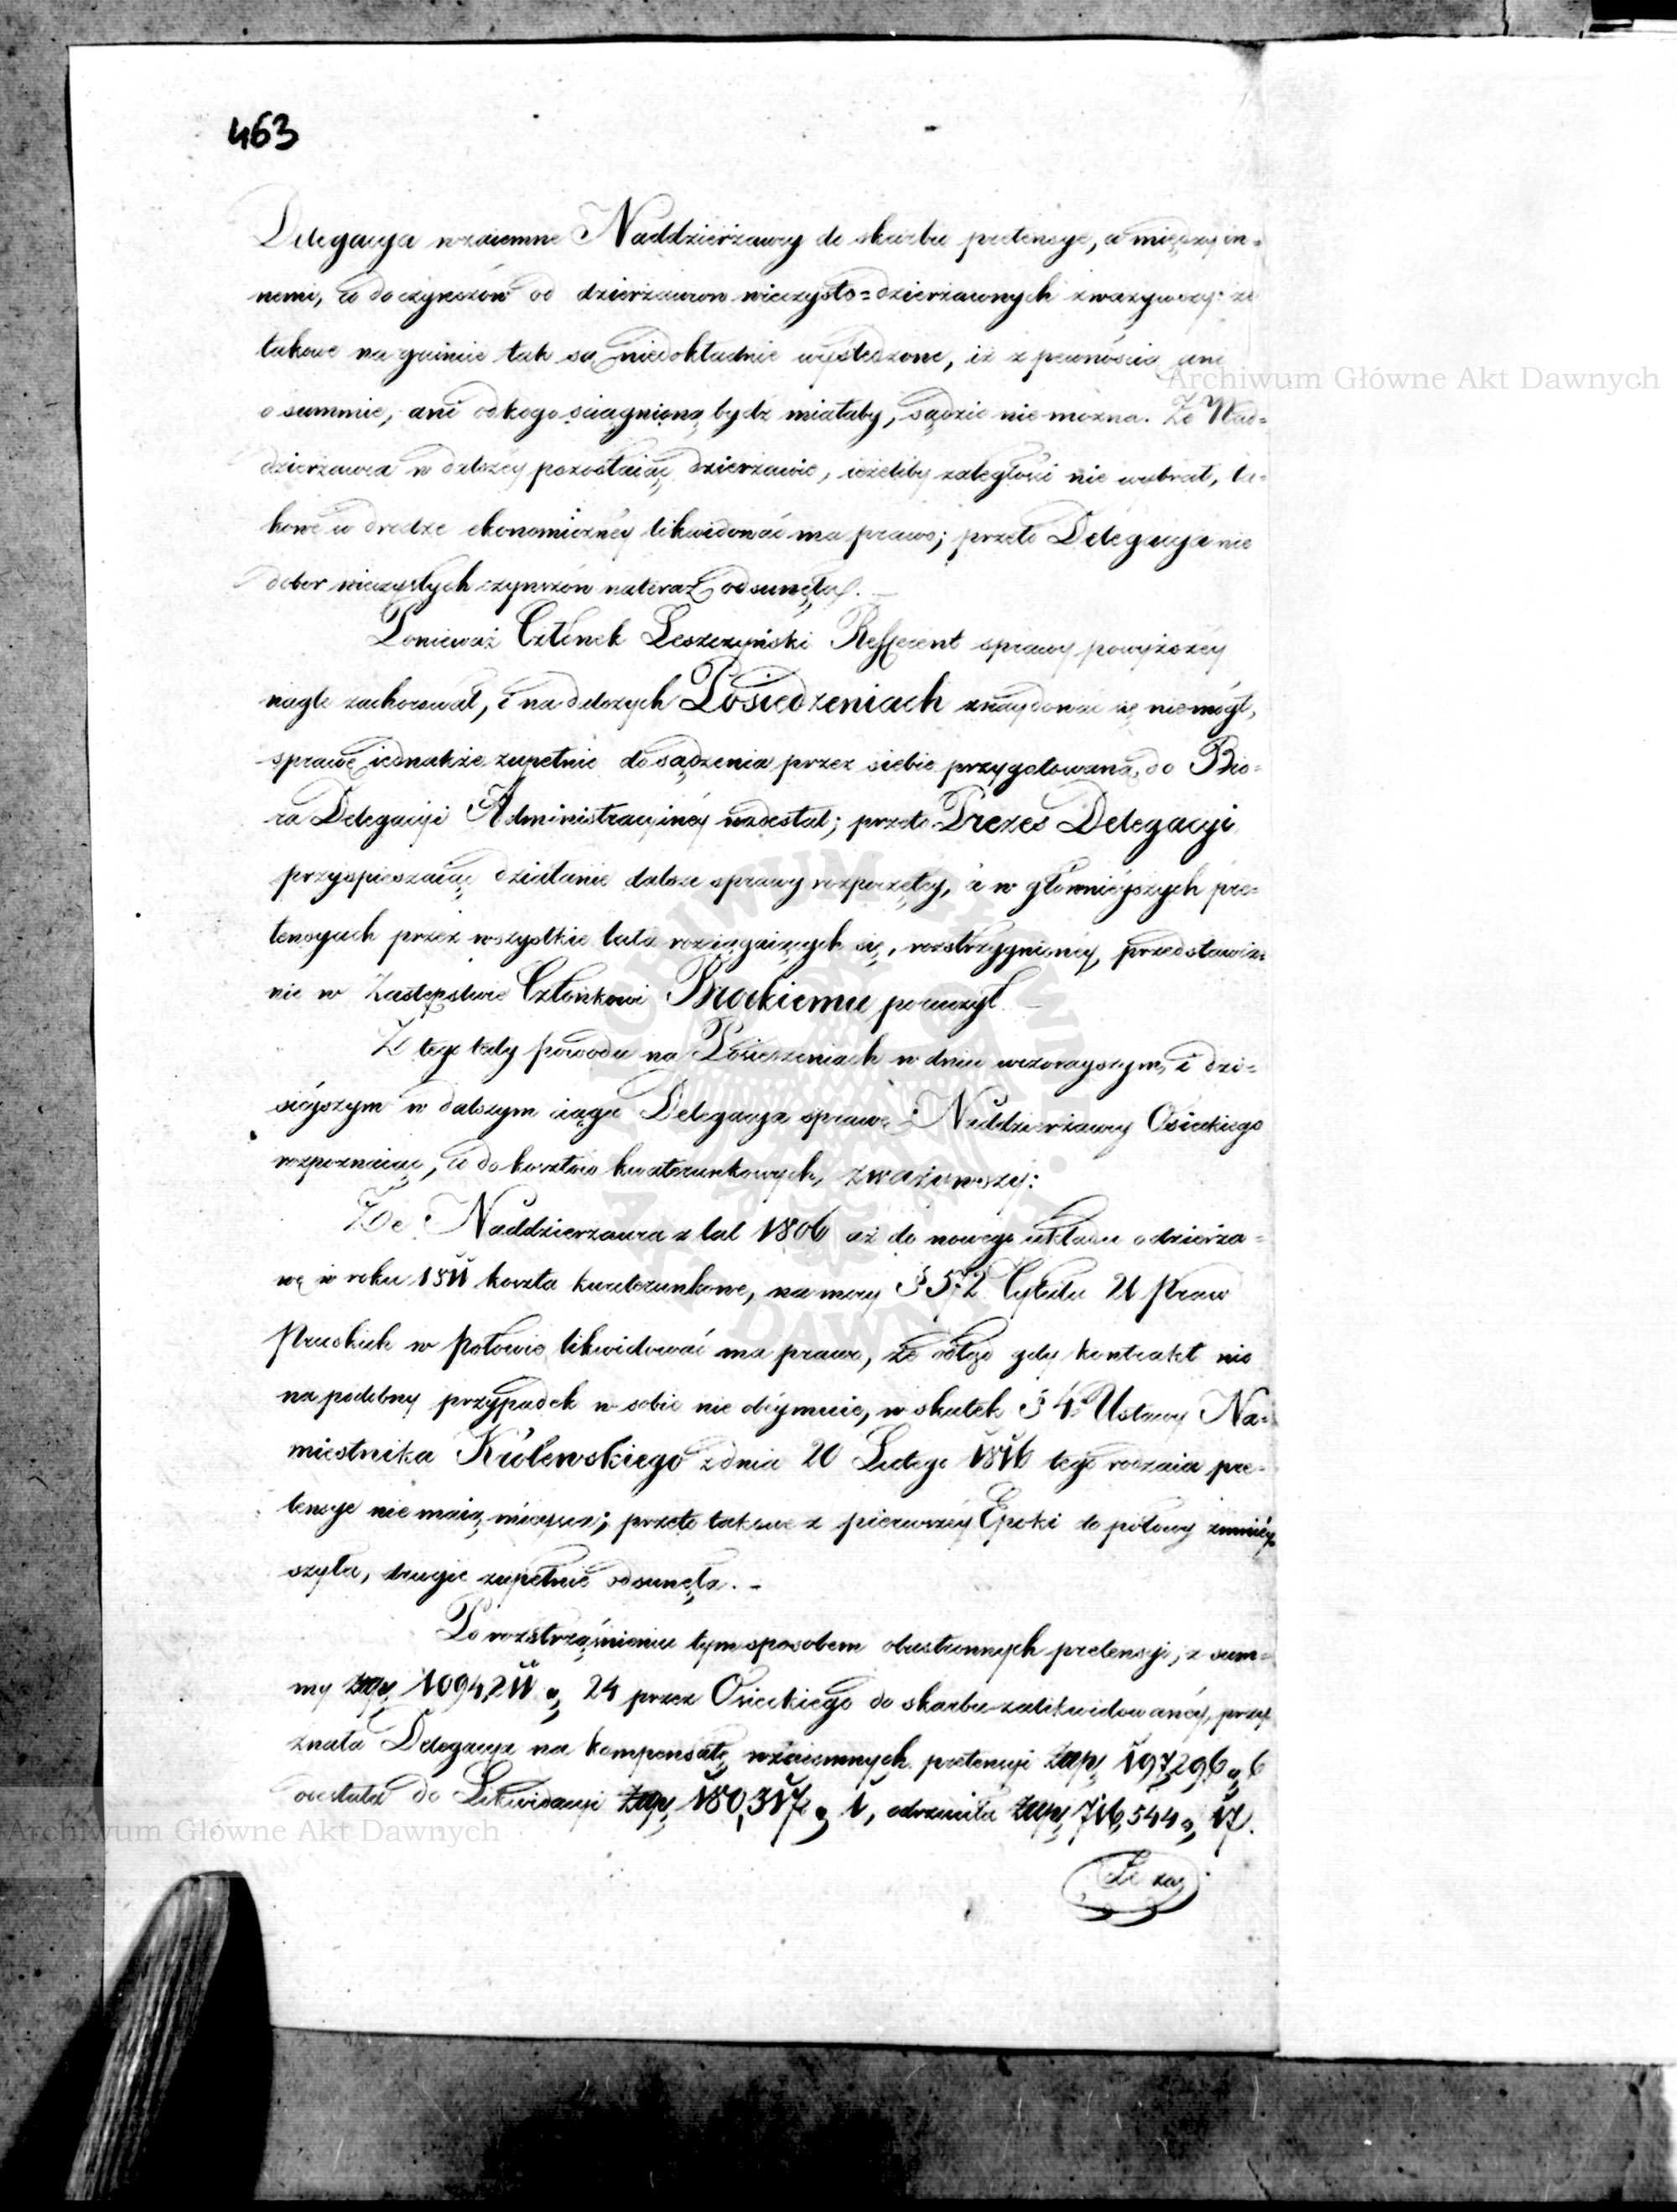 463
Delegacya wzaiemne Naddzierżawcy do skarbu pretensye, a między in=
nemi, co do czynszów od dzierżawców wieczysto=dzierżawnych zważywszy: że
takowe na gruncie tak są niedokładnie wyśledzone, iż z pewnością ani
Archiwum Główne Akt Dawnych
o summie, ani od kogo ściągnioną bydź miałaby, sądzić nie można. Że Nad=
dzierżawca w dalszéy pozostaiąc dzierżawie, ieżeliby zaległości nie wybrał, ta=
kowe w drodze ekonomicznéy likwidować ma prawo; przeto Delegacya nie
dobor wieczystych czynszów nateraz odsunęła. –
Ponieważ Członek Leszczyński Refferent sprawy powyższéy
nagle zachorował, i na dalszych Posiedzeniach znaydować się niemógł,
sprawę iednakże zupełnie do sądzenia przez siebie przygotowaną, do Bió=
ra Delegacyi Administracyinéy nadesłał; przeto Prezes Delegacyi
przyspieszaiąc działanie dalsze sprawy rozpoczętéy, a w głównieyszych pre=
tensyach przez wszystkie lata rozciągaiących się, rozstrzygnionéy, przedstawie=
nie w Zastępstwie Członkowi Brockiemu poruczył –
Z tego tedy powodu na Posiedzeniach w dniu wczorayszym, i dzi=
sieyszym w dalszym ciągu Delegacya sprawę Naddzierżawcy Osieckiego
rozpoznaiąc, co do kosztów kwaterunkowych, zważywszy:
Że Naddzierżawca z lat 1806 aż do nowego układu o dzierża=
wę w roku 1811 koszta kwaterunkowe, na mocy § 572 Tytułu 21 Praw
Pruskich w połowie likwidować ma prawo, że odtąd gdy kontrakt nic
na podobny przypadek w sobie nie obeymuie, w skutek § 4 Ustawy Na=
miestnika Królewskiego z dnia 20 Lutego 1816 tego rodzaiu pre=
tensye nie maią mieysca; przeto takowe z pierwszéy Epoki do połowy zmniéy=
szyła, drugie zupełnie odsunęła. –
Po rozstrząśnieniu tym sposobem obustronnych pretensyi, z sum=
my złp. 1094,211 g. 24 przez Osieckiego do skarbu zalikwidowanéy, przy=
znała Delegacya na kompensatę wzaiemnych pretensyi złp. 197,296 g. 6
odesłała do Likwidacyi złp. 180,317 g. 1, odrzuciła złp. 716,544 g. 17.
Archiwum Główne Akt Dawnych